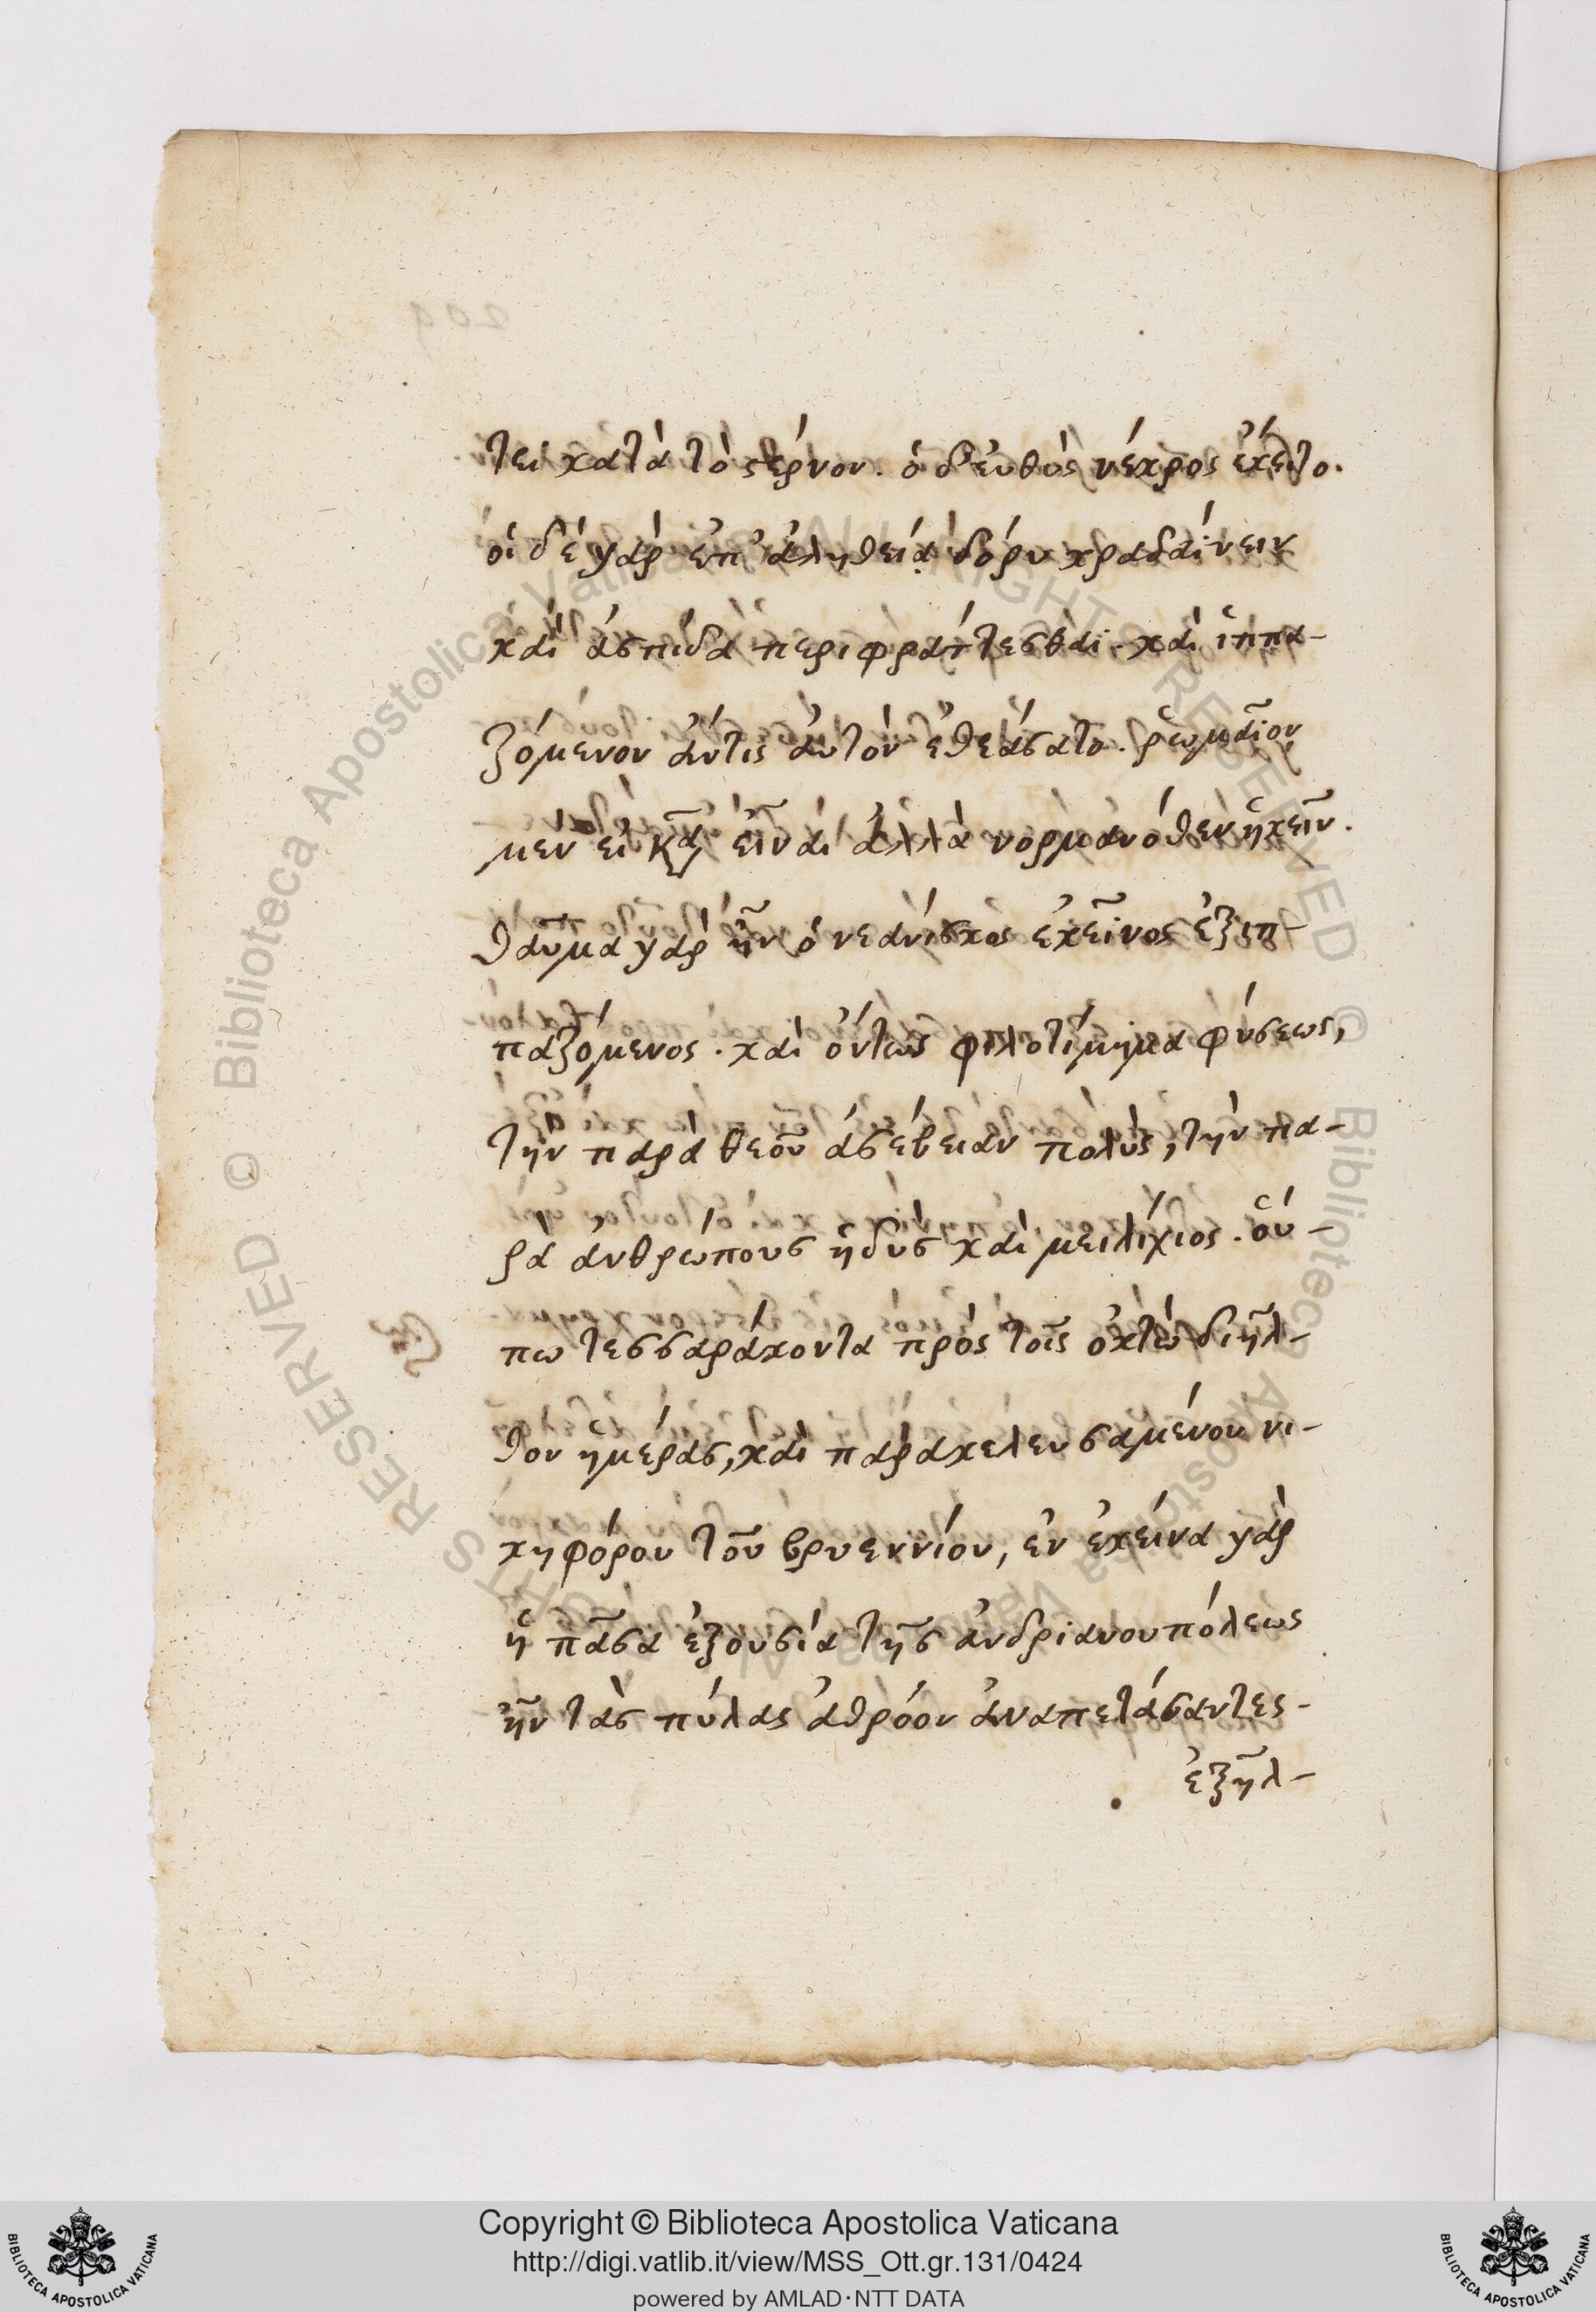 τει κατὰ τὸ στέρνον. ὁ δ' εὐθὺς νέκρος ἔκειτο.
οἱ δὲ γὰρ ἐπ' ἀληθείᾳ δόρυ κραδαίνειν
καὶ ἀσπίδα περιφράττεσθαι. καὶ ἱππα-
ζόμενον ἄντις ἀυτὸν ἐθεάσατο. ῥωμαῖον
μὲν εἰ εἶναι ἀλλὰ νορμανόθεν ἡκεῖν.
θαῦμα γὰρ ἦν ὁ νεανίσκος ἐκεῖνος ἐξιπ-
παζόμενος. καὶ ὄντως φιλοτίμημα φύσεως,
τὴν παρὰ θεοῦ ἀσέβειαν πολὺς, τὴν πα-
ρὰ ἀνθρώπους ἡδὺς καὶ μειλίχιος. ὅυ-
πω τεσσαράκοντα πρὸς τοῖς ὀκτὼ διῆλ-
θον ἡμέρας, καὶ παρακελευσαμένου νι-
κηφόρου τοῦ βρυεννίου, ἐν ἐκείνα γὰρ
ἡ πᾶσα ἐξουσία τῆς ἀνδριανουπόλεως
ἦν τὰς πύλας ἀθρόον ἀναπετάσαντες-
ἐξῆλ-
Copyright © Biblioteca Apostolica Vaticana
http://digi.vatlib.it/view/MSS_Ott.gr.131/0424
powered by AMLAD·NTT DATA